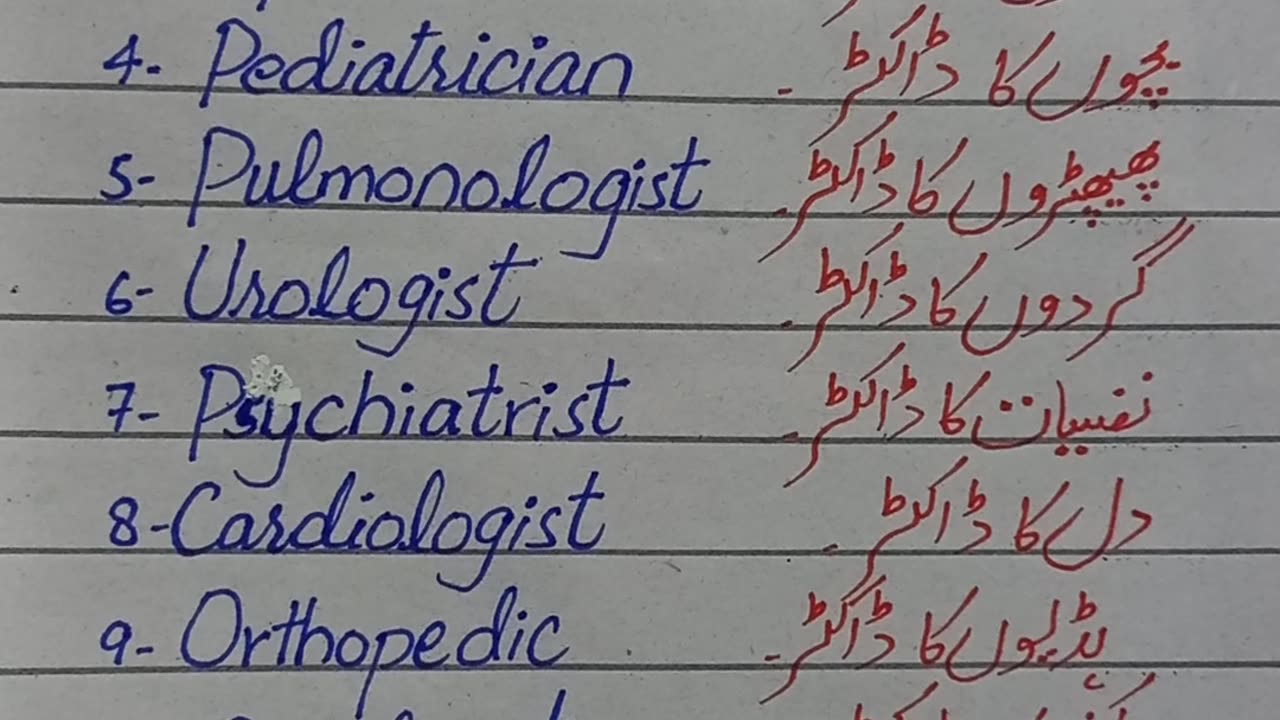 4- Pediatrician بچوں کا ڈاکٹر۔
5- Pulmonologist پھیپھڑوں کا ڈاکٹر۔
6- Urologist گردوں کا ڈاکٹر۔
7- Psychiatrist نفسیات کا ڈاکٹر۔
8- Cardiologist دل کا ڈاکٹر۔
9- Orthopedic ہڈیوں کا ڈاکٹر۔